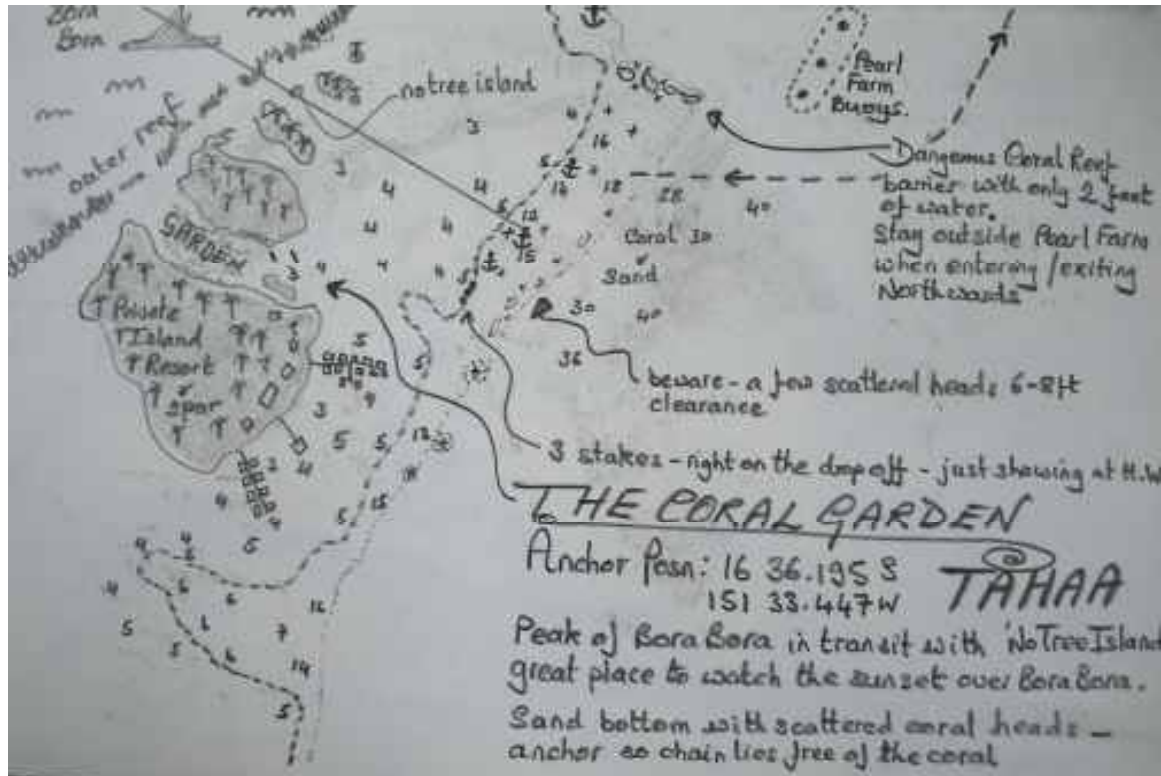 Bora
Bora
outer reef
no tree island
Pearl
Farm
Buoys.
3
4
+
+
16
5
3
4
4
5
12
18
28
40
Dangerous Coral Reef
barrier with only 2 feet
of water.
Stay outside Pearl Farm
when entering/exiting
Northwards
GARDEN
4
4
5
12
15
Coral 30
Sand
3
4
4
4
5
30
40
36
Private
Island
Resort
& spar
5
9
5
3
5
5
12
beware - a few scattered heads 6-8ft
clearance
3 stakes - right on the drop off - just showing at H.W
3
4
4
5
5
15
THE CORAL GARDEN
TAHAA
Anchor Posn: 16 36.195 S
151 33.447W
4
5
6
6
16
4
5
5
6
6
7
14
5
Peak of Bora Bora in transit with 'No Tree Island
great place to watch the sunset over Bora Bora.
Sand bottom with scattered coral heads -
anchor so chain lies free of the coral